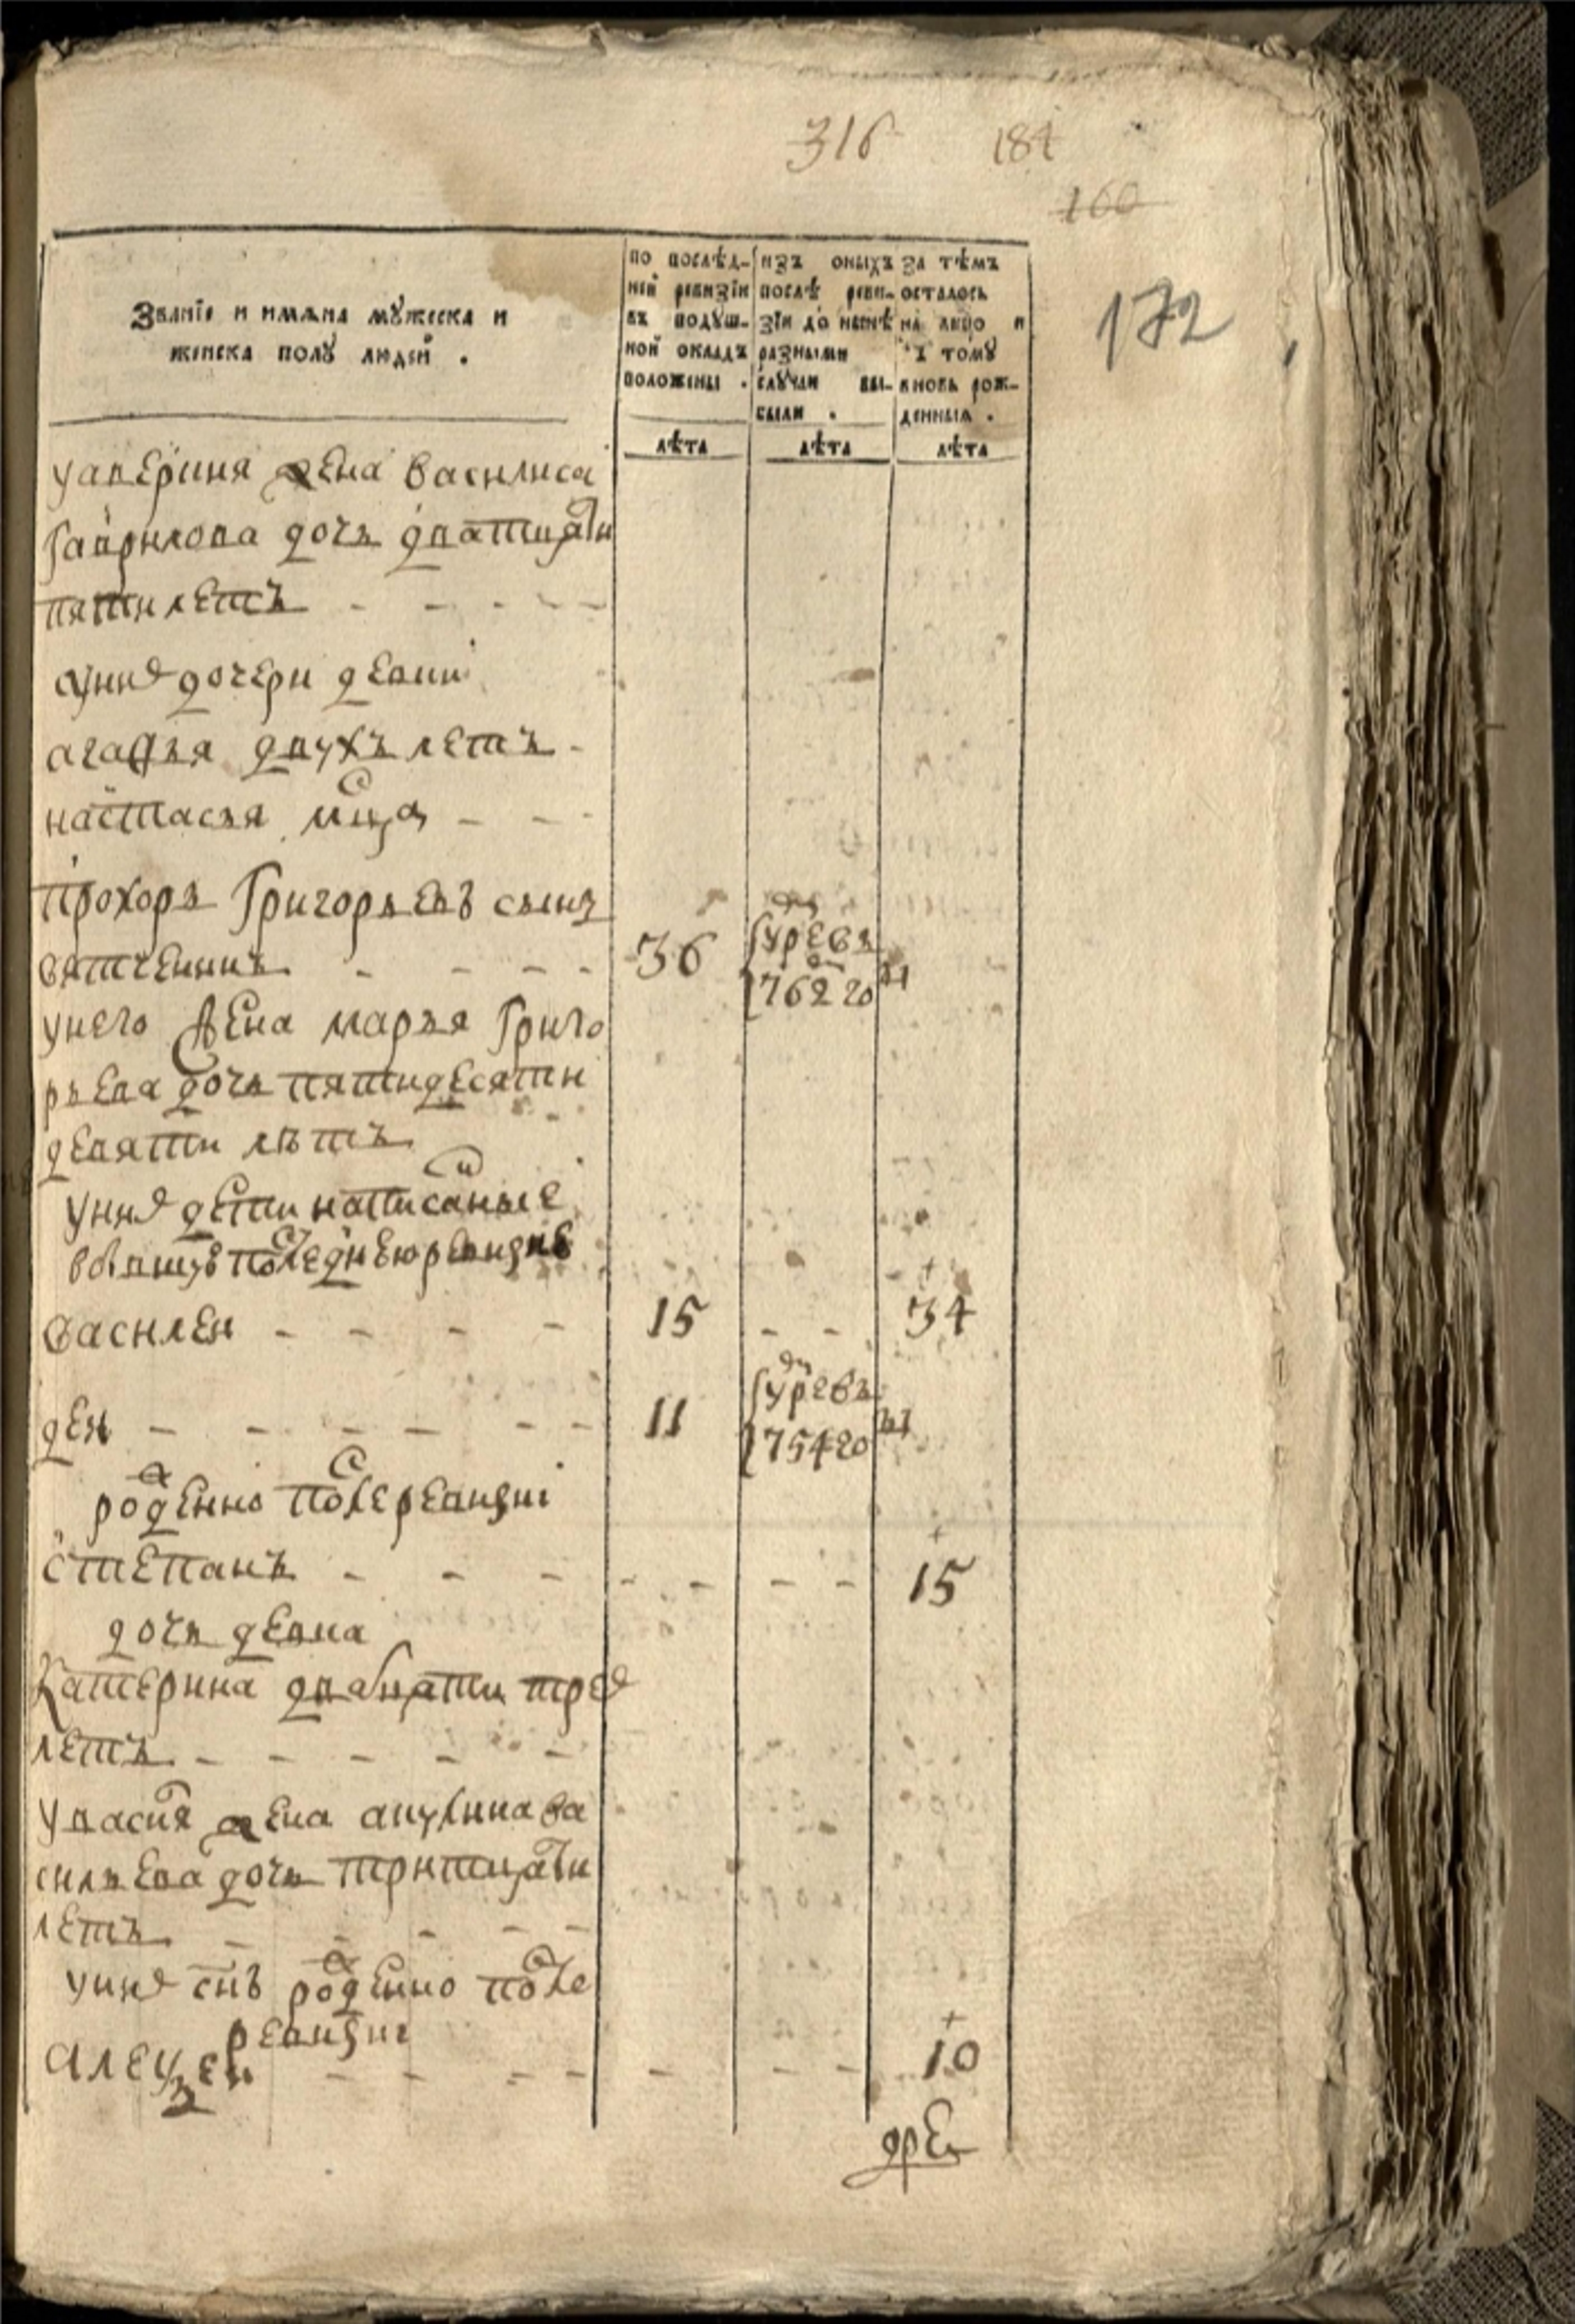 316 184
160
172
Званїе и имѧна мꙋжеска и
женска полꙋ людей .
по послѣд-
ней ревизїи
въ подꙋш-
ной окладъ
положены .
изъ оныхъ
послѣ реви-
зїи до нынѣ
разными
слꙋчаи вы-
были .
за тѣмъ
осталось
на лицо и
къ томꙋ
вновь рож-
денныѧ .
лѣта лѣта лѣта
уаверьиня жена василиса
гаврилова дочь дватцати
пяти летъ
унихъ дочери девки
агафья двухъ летъ
настасья
прохоръ григорьевъ сынъ
вятченинъ 36 умре въ
1762 году
унего жена марья григо
рьева дочь пятидесяти
девяти лѣтъ
унихъ дети написанные
вбывшую последнеюревизие
василеи 15 34
11 умре въ
1754 году
рожденно после ревизиї
степанъ 15
дочь девка
катерина двадцати трех
летъ
увасилья жена акулина ва
сильева дочь тритцати
летъ
унихъ снъ рожденно после
ревизиї
алеѯеи 10